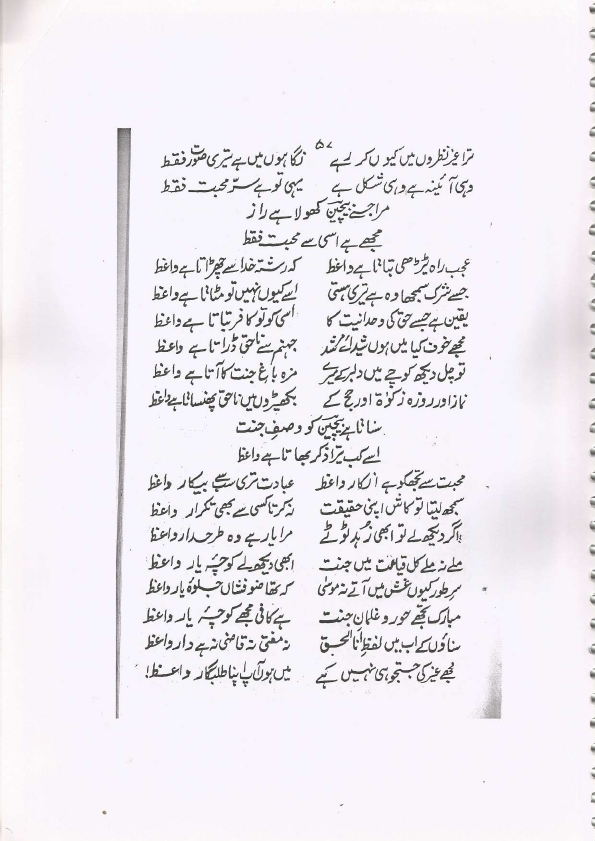 ۵۷
ترا غیر نظروں میں کیوں کر رہے نگاہوں میں ہے تیری صورت فقط
وہی آئینہ ہے وہی شکل ہے یہی تو ہے سرِّ محبت فقط
مرا جس نے بیچین کھولا ہے راز
مجھے ہے اسی سے محبت فقط
عجب راہ ٹیڑھی بتاتا ہے واعظ کہ رشتہ خدا سے چھڑاتا ہے واعظ
جسے شرک سمجھا وہ ہے تیری ہستی اسے کیوں نہیں تو مٹاتا ہے واعظ
یقین ہے جسے حق کی وحدانیت کا اسی کو تو کافر بتاتا ہے واعظ
مجھے خوف کیا میں ہوں شیدائے مُرشد جہنم سے ناحق ڈراتا ہے واعظ
تو چل دیکھ کوچے میں دلبر کے میرے مزہ باغِ جنت کا آتا ہے واعظ
نماز اور روزہ زکوٰۃ اور حج کے بکھیڑوں میں ناحق پھنساتا ہے واعظ
سناتا ہے بیچین کو وصفِ جنت
اسے کب ترا ذکر بھاتا ہے واعظ
محبت سے تجھکو ہے انکار واعظ عبادت تری سب ہے بیکار واعظ
سمجھ لیتا تو کاش اپنی حقیقت نہ کرتا کسی سے بھی تکرار واعظ
اگر دیکھ لے تو ابھی زُہد ٹوٹے مرا یار ہے وہ طرحدار واعظ
ملے نہ ملے کل قیامت میں جنت ابھی دیکھ لے کوچۂ یار واعظ
سرِ طور کیوں غش میں آتے نہ موسیٰ کہ تھا ضوفشاں جلوۂ یار واعظ
مبارک تجھے حور و غلمانِ جنت ہے کافی مجھے کوچۂ یار واعظ
سناؤں کسے اب میں لفظِ انا الحق نہ مفتی نہ قاضی نہ ہے دار واعظ
مجھے غیر کی جستجو ہی نہیں ہے میں ہوں آپ اپنا طلبگار واعظ!